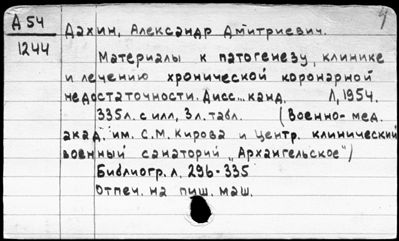 А 54
1244
Дахин, Александр Дмитриевич.
Материалы к патогенезу, клинике
и лечению хронической коронарной
недостаточности. Дисс... канд. Л, 1954.
335л. с илл, 3л. табл. (Военно-мед.
акад. им. С.М. Кирова и Центр. клинический
военный санаторий „Архангельское")
Библиогр. л. 296-335
Отпеч. на пиш. маш.